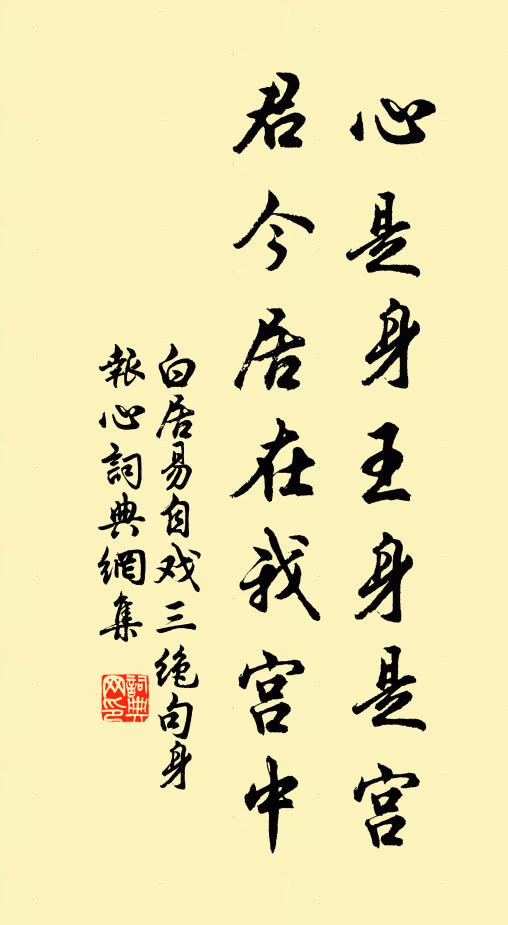 心是身王身是宫
君今居在我宫中
白居易自戏三绝句身
報心詞典網集
詞典
网印